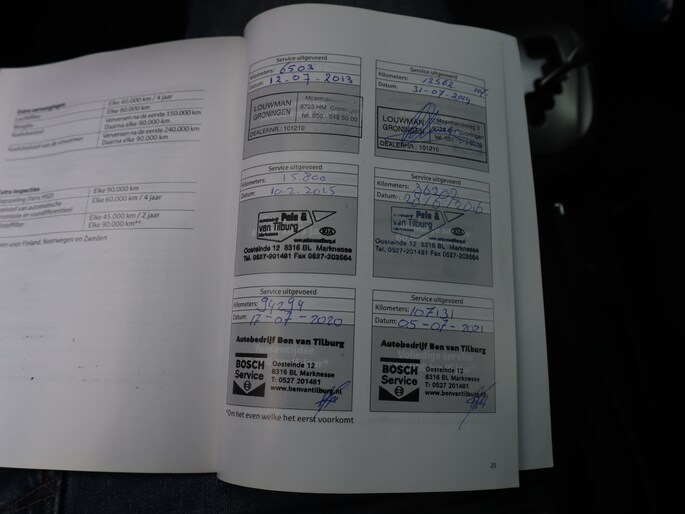 Extra vervangingen
Elke 60.000 km / 4 jaar
Elke 90.000 km
Verversen na de eerste 150.000 km
Daarna elke 90.000 km
Verversen na de eerste 240.000 km
Daarna elke 90.000 km
Extra inspecties
Elke 90.000 km
Elke 60.000 km / 4 jaar
Elke 45.000 km / 2 jaar
Elke 90.000 km**
voor Finland, Noorwegen en Zweden
Service uitgevoerd
Kilometers: 6503
Datum: 12-07-2013
LOUWMAN
GRONINGEN
9723 HM Groningen
Tel. 050 - 549 50 00
DEALERNR.: 101210
Service uitgevoerd
Kilometers: 12562
Datum: 31-07-2014
LOUWMAN
GRONINGEN
DEALERNR.: 101210
Service uitgevoerd
15.800
10-2-2015
Pels &
van Tilburg
KIA
Oosteinde 12 8316 BL Marknesse
Tel. 0527-201481 Fax 0527-203564
Service uitgevoerd
Kilometers: 36202
Datum:
Pels &
van Tilburg
KIA
Oosteinde 12 8316 BL Marknesse
Tel. 0527-201481 Fax 0527-203564
Service uitgevoerd
Kilometers: 94294
Datum: 17-07-2020
Autobedrijf Ben van Tilburg
BOSCH
Service
Oosteinde 12
8316 BL Marknesse
T: 0527 201481
www.benvantilburg.nl
Service uitgevoerd
Kilometers: 107131
Datum: 05-07-2021
Autobedrijf Ben van Tilburg
BOSCH
Service
Oosteinde 12
8316 BL Marknesse
T: 0527 201481
www.benvantilburg.nl
*Om het even welke het eerst voorkomt